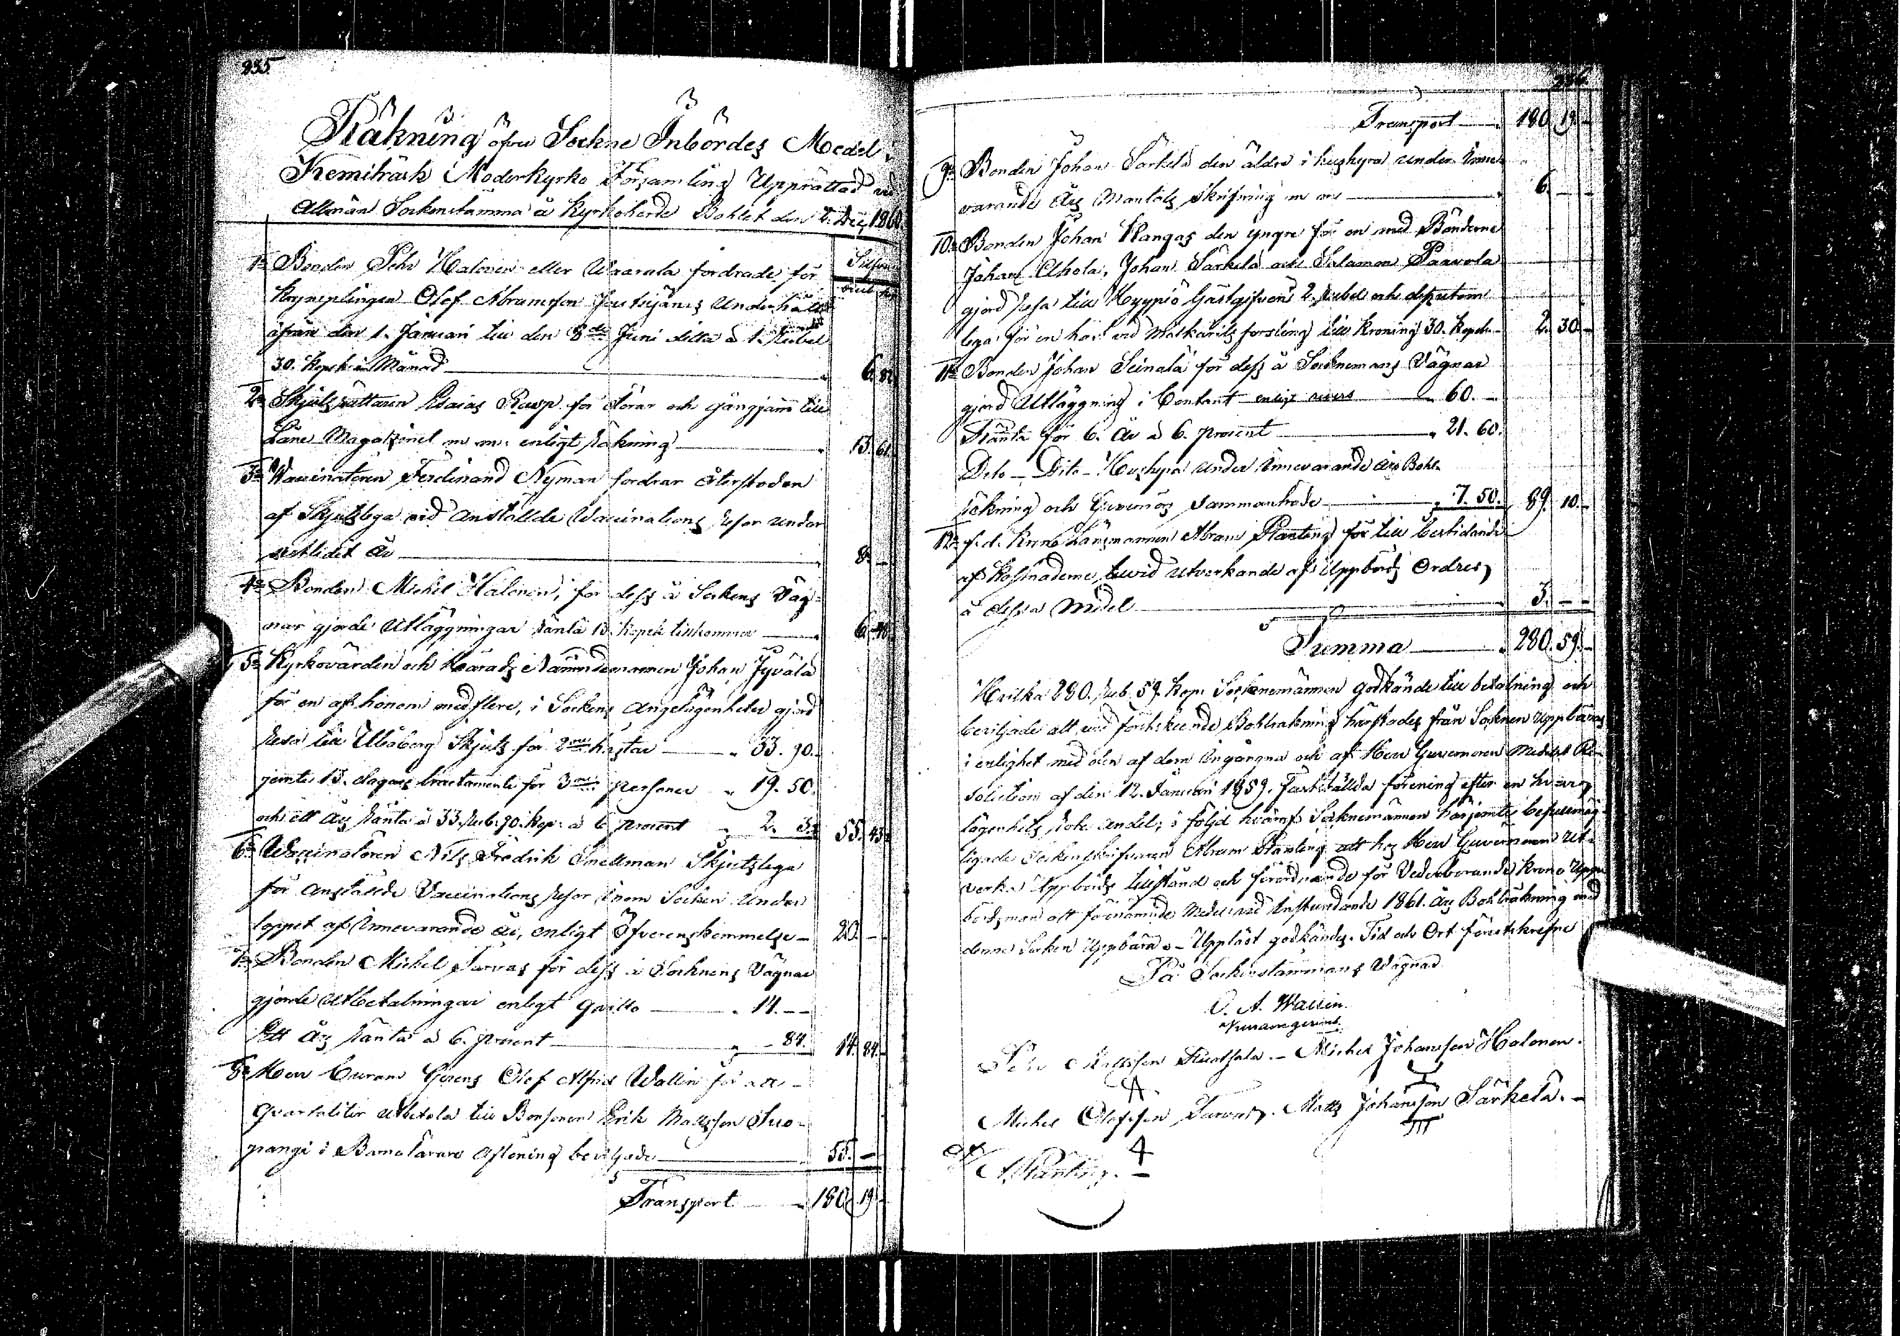 235
Räkning öfver Sockne Inbördes Medel i
Kemiträsk Moderkyrko Församling Upprättad vid
Allmän Sockenstämma å Kyrkoherde Bohlet den 2. 1860.
Silfver
1o Bonden Pehr Halonen eller Waarala fordrade för
Krymplingen Olof Abramsson underhåll
ifrån den 1. Januari till den 8de Juni detta à 1. Rubel
30. Kopek i Månad 6. 82
2o Skjutsrättaren Esaias för Körar och gångjärn till
Låne Magazinet m m: enligt räkning 13. 61.
3o Waccinatören Ferdinand Nyman fordrar återstoden
af Skjutslega vid anstälda Waccinations resor under
sistlidet år 8. –
4o Bonden Michel Halonen, för dess å Sockens väg-
nar gjorde Utläggningar ränta 13. Kopek tillkommer 6.
5o Kyrkovärden och Härads Nämndemannen Johan Jyvälä
för en af honom med flere, i Sockens angelägenheter gjord
resa till Uleåborg Skjuts för 2ne hästar „ 33. 90.
jemte 13. dagars tractamente för 3ne personer „ 19. 50.
och ett års ränta å 33. Rub. 90. Kop. à 6 procent „ 2. 3. 55. 43
6o Waccinatören Nils Fredrik Snellman Skjutslega
för anstälde Vaccinations resor inom Socken under
loppet af innevarande år, enligt Öfverenskommelse 20. –
7o Bonden Michel Tarvas för dess å Socknens vägnar
gjorde Utbetalningar enligt quitto „ 14. –
Ett års ränta à 6. procent „ – 84. 14. 84.
8o Herr Curam Gerens Olof Alfred Wallin för att
qvartaliter utbetala till Bonsonen Erik Mattsson Suo-
pangi i Barnalärare aflöning beviljade 55. –
Transport 180. 19.
Transport 180. 19.
9o Bonden Johan Särkelä den äldre i hushyra under inne-
varande års Mantals skrifning m m 6. –
10o Bonden Johan Kangas den yngre för en med Bönderne
Johan Ahola, Johan Särkelä och Salamon Paavola
gjord resa till Hyypiö Gästgifveri 2. Rubel och dessutom
lega för en häst vid Matkarils forsling till Kroning 30. Kopek 2. 30.
11o Bonden Johan Seinälä för dess å Sockenmans Vägnar
gjord Utläggning i Contant enligt revers „ 60. –
Ränta för 6. År à 6. procent „ 21. 60.
Dito – Dito – Hushyra under innevarande års Bohl-
räkning och Guvernörs sammanträde „ 7. 50. 89. 10.
12o f. d. Krono Länsmannen Abram Planting för till bestridande
af Kostnaderne, hvid utverkande af Uppbörds Ordres,
å dessa medel 3. –
Summa 280. 59.
Hvilka 280. Rub. 59. Kop. Sockenemännen godkände till betalning och
beviljade att vid förestående Bohlräkning härstädes från Socknen uppbäras
i enlighet med den af dem ingångna och af Herr Guvernören meddelt Re-
solution af den 12. Januari 1859. Fastställda förening efter en hvar
lägenhets andel, i följd hväraf Sockenemännen härjemte befullmäg-
tigade Sockenskrifvaren Abram Planting att hos Herr Guvernören ut-
verka Uppbörds tillstånd och förordnande för Vederbörande Krono Uppbö-
bördsman att förenämnde medel vid instundande 1861. års Bohlräkning med
denne Socken Uppbära. – Uppläst godkändes. Tid och Ort föreskrifne
På Sockenstämmans Vägnar
O. A. Wallin
Curam gerens.
Pehr Mattsson – Michel Johansson Halonen.
Michel Olofsson Tarvas. Matts Johansson Särkelä. –
A. Planting.